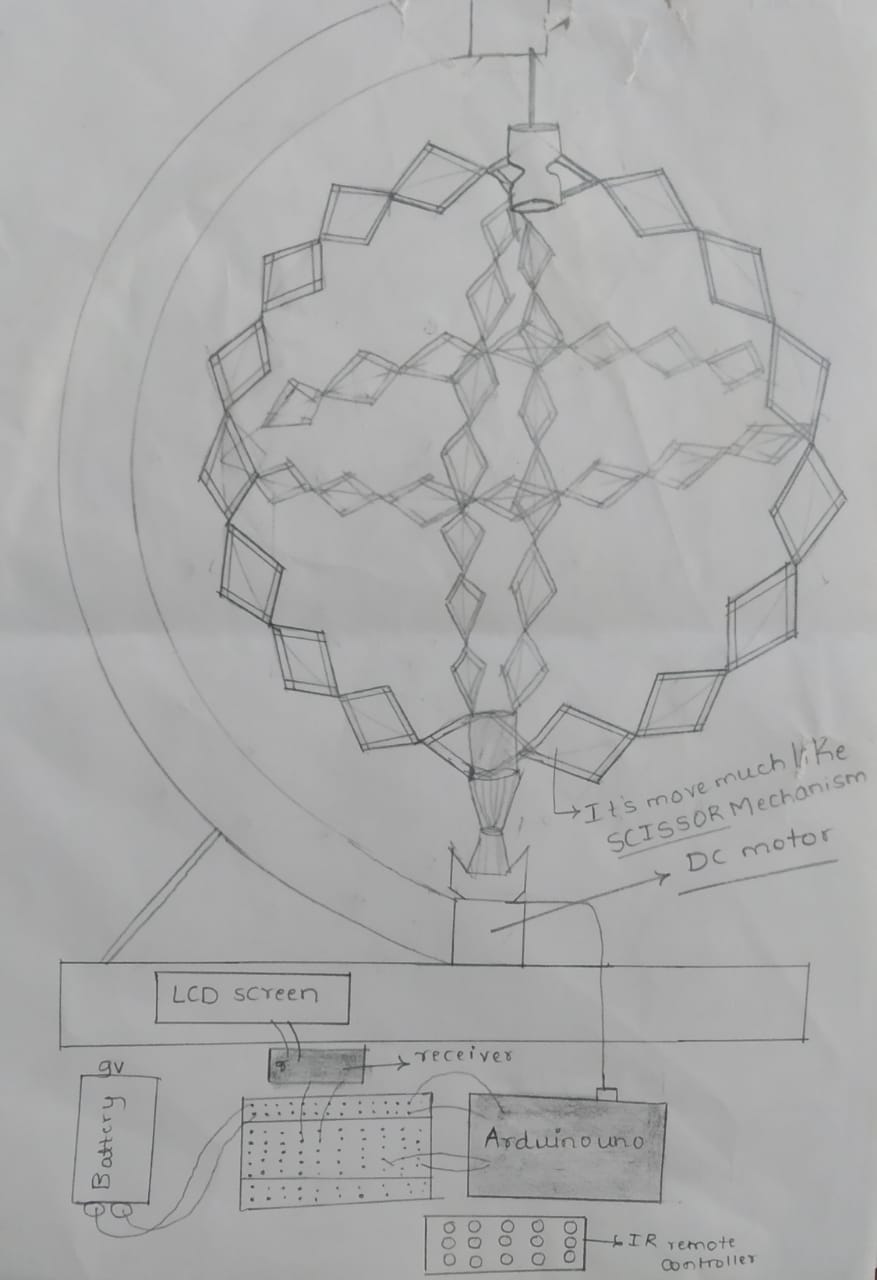 It's move much like
SCISSOR Mechanism
DC motor
LCD screen
receiver
9v
Battery
Arduino uno
IR remote
controller